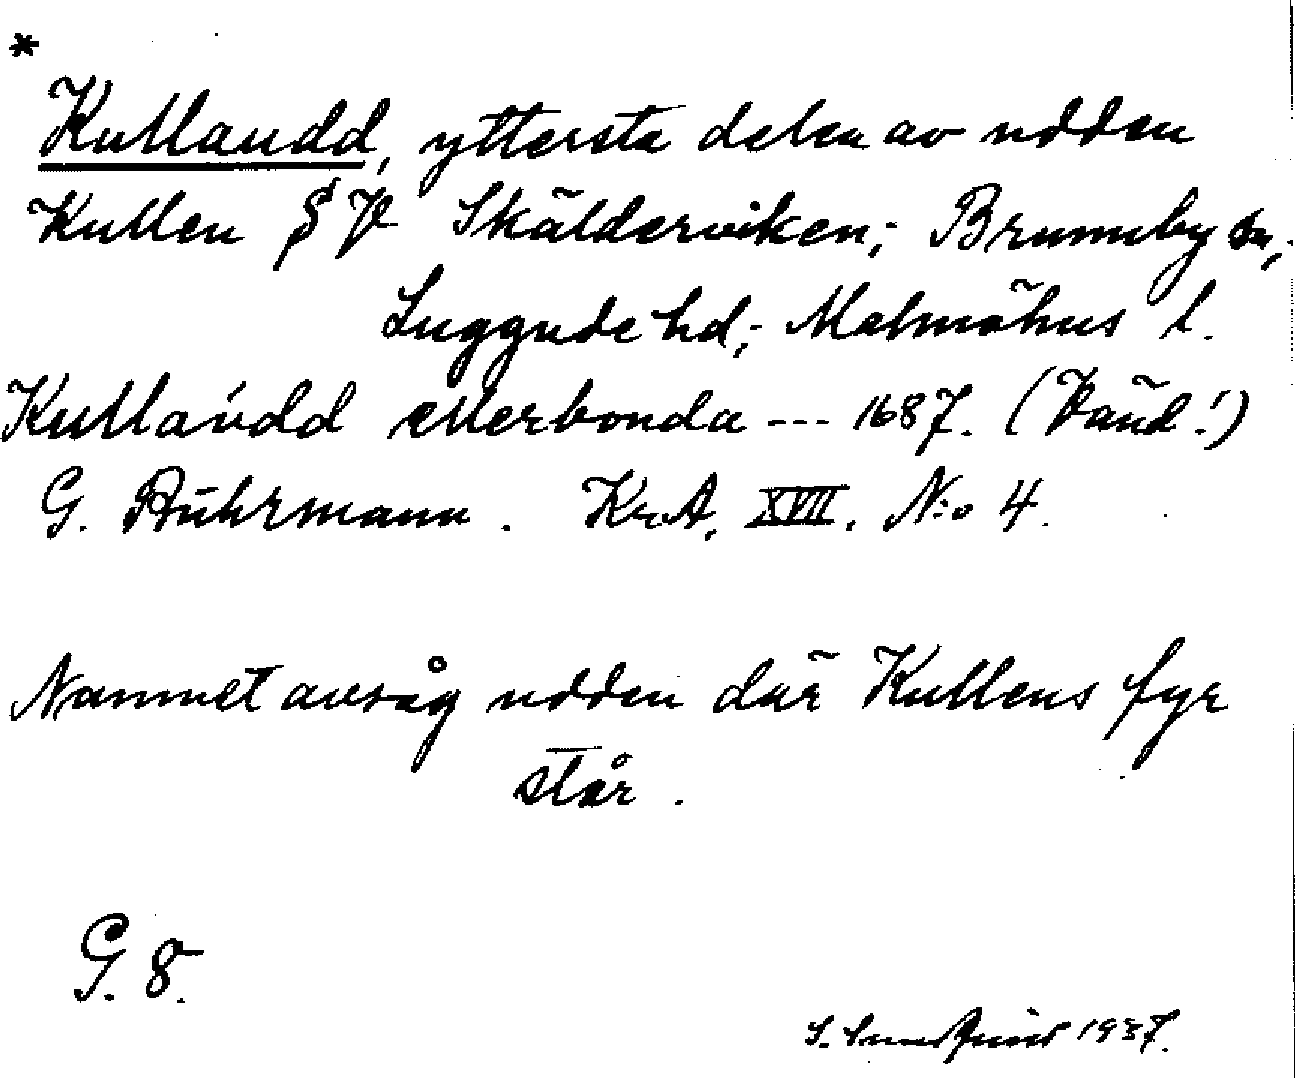 *
Kullaudd, yttersta delen av udden
Kullen S V Skälderviken; Brunnby sn,
Luggude hd; Malmöhus l.
Kullaúdd ellerbonda --- 1687. (Vänd!)
G. Buhrmann. Kr.A. XVII. N:o 4.
Namnet avsåg udden där Kullens fyr
står.
G. 8.
S. 1937.